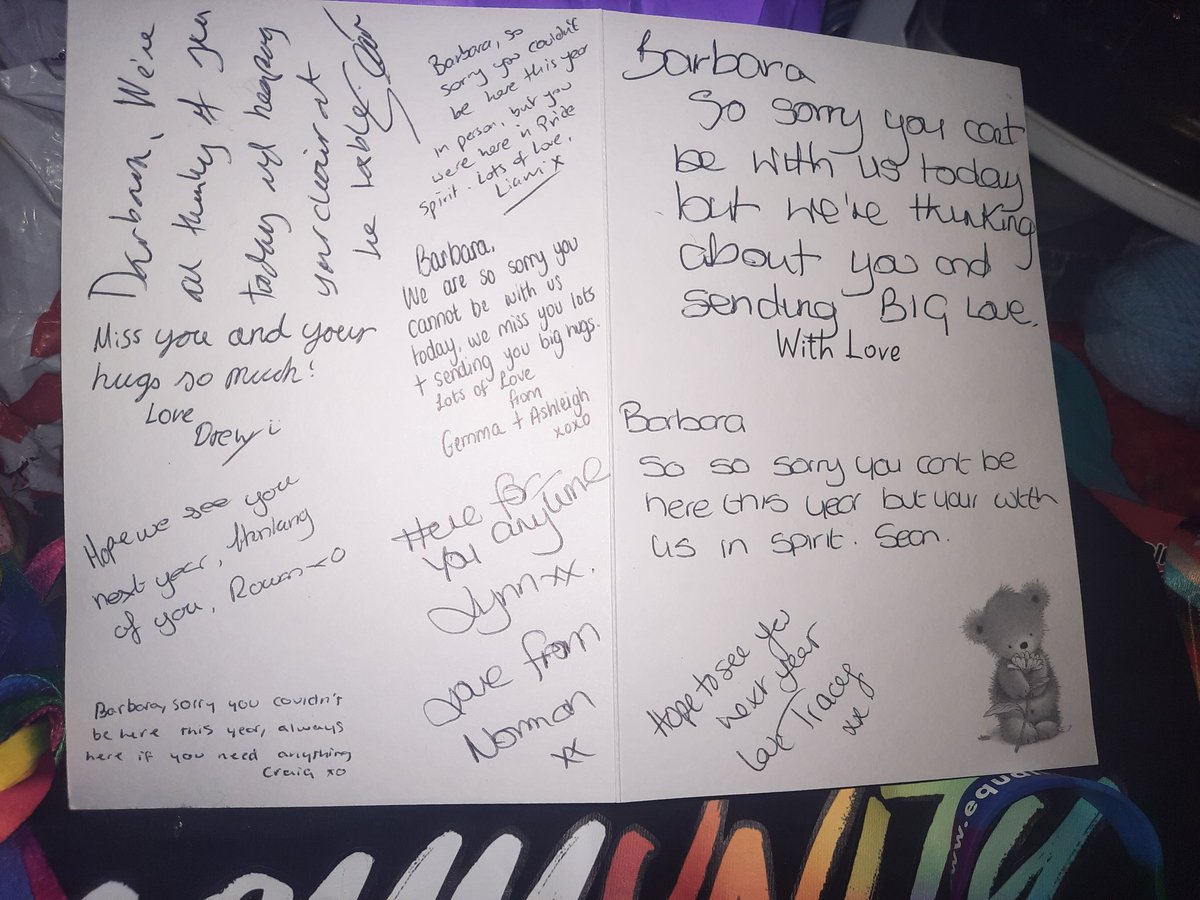 Barbara, We're
all thinking of you
today and keeping
your chair at
the table.
Miss you and your
hugs so much!
Love
Drew
Hope we see you
next year, thinking
of you, Rowan xo
Barbara, sorry you couldn't
be here this year, always
here if you need anything
Craig xo
Barbara, so
sorry you couldn't
be here this year
in person, but you
were here in Pride
spirit. Lots of Love,
Liam x
Barbara,
We are so sorry you
cannot be with us
today, we miss you lots
+ sending you big hugs.
Lots of Love
from
Gemma + Ashleigh
xoxo
Here for
you anytime
Lynn xx.
Love from
Norman
xx
Barbara
So sorry you cant
be with us today
but we're thinking
about you and
sending BIG Love.
With Love
Barbara
So so sorry you cant be
here this year but your with
us in spirit. Sean.
Hope to see you
next year
Love Tracey
xx
www.equa